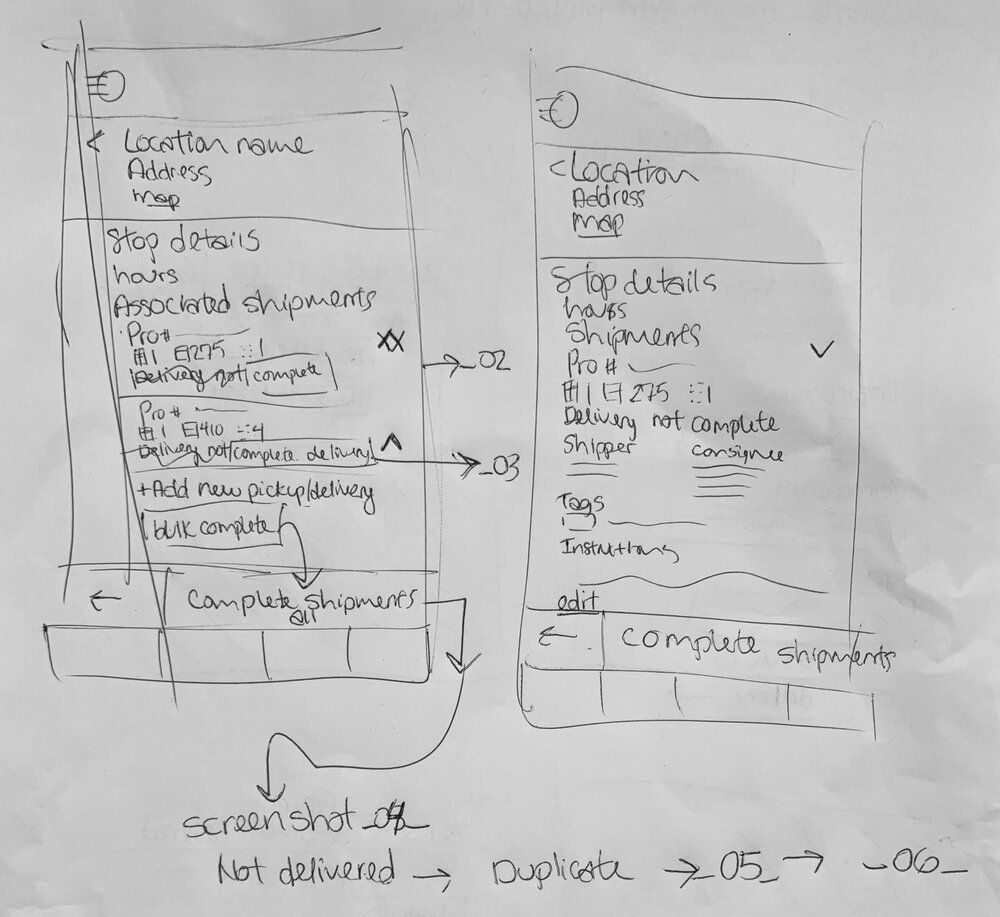 < Location name
Address
map
Stop details
hours
Associated shipments
Pro#
1 275 1
Delivery not/complete
Pro #
1 410 4
Delivery not/complete delivery
+Add new pickup/delivery
bulk complete
← Complete shipments
all
→ _02
→ _03
< Location
Address
map
Stop details
hours
Shipments
Pro #
1 275 1
Delivery not complete
Shipper consignee
Tags
Instructions
edit
← complete shipments
screenshot
Not delivered → Duplicate → _05_ → _06_